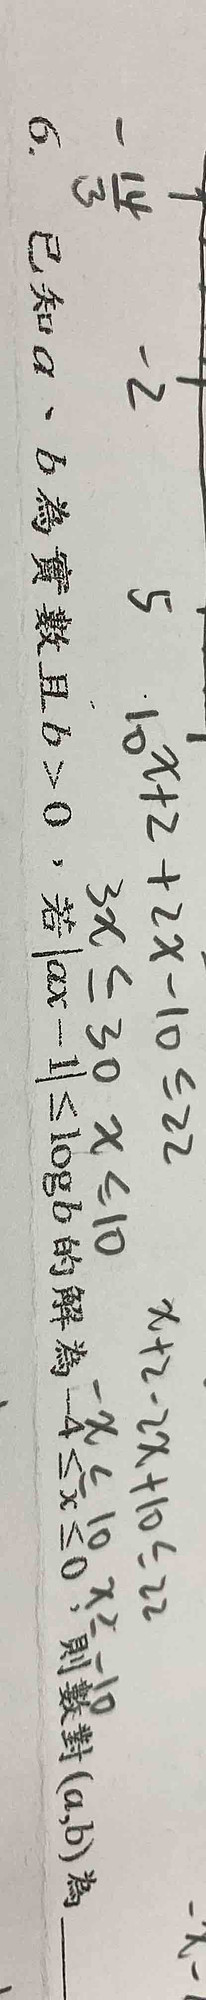 -14/3 -2 5 10
x+2+2x-10≤22 x+2-2x+10≤22
3x≤30 x≤10 -x≤10 x≥-10
6. 已知a、b為實數且b>0，若|ax-1|≤logb的解為-4≤x≤0，則數對(a,b)為____